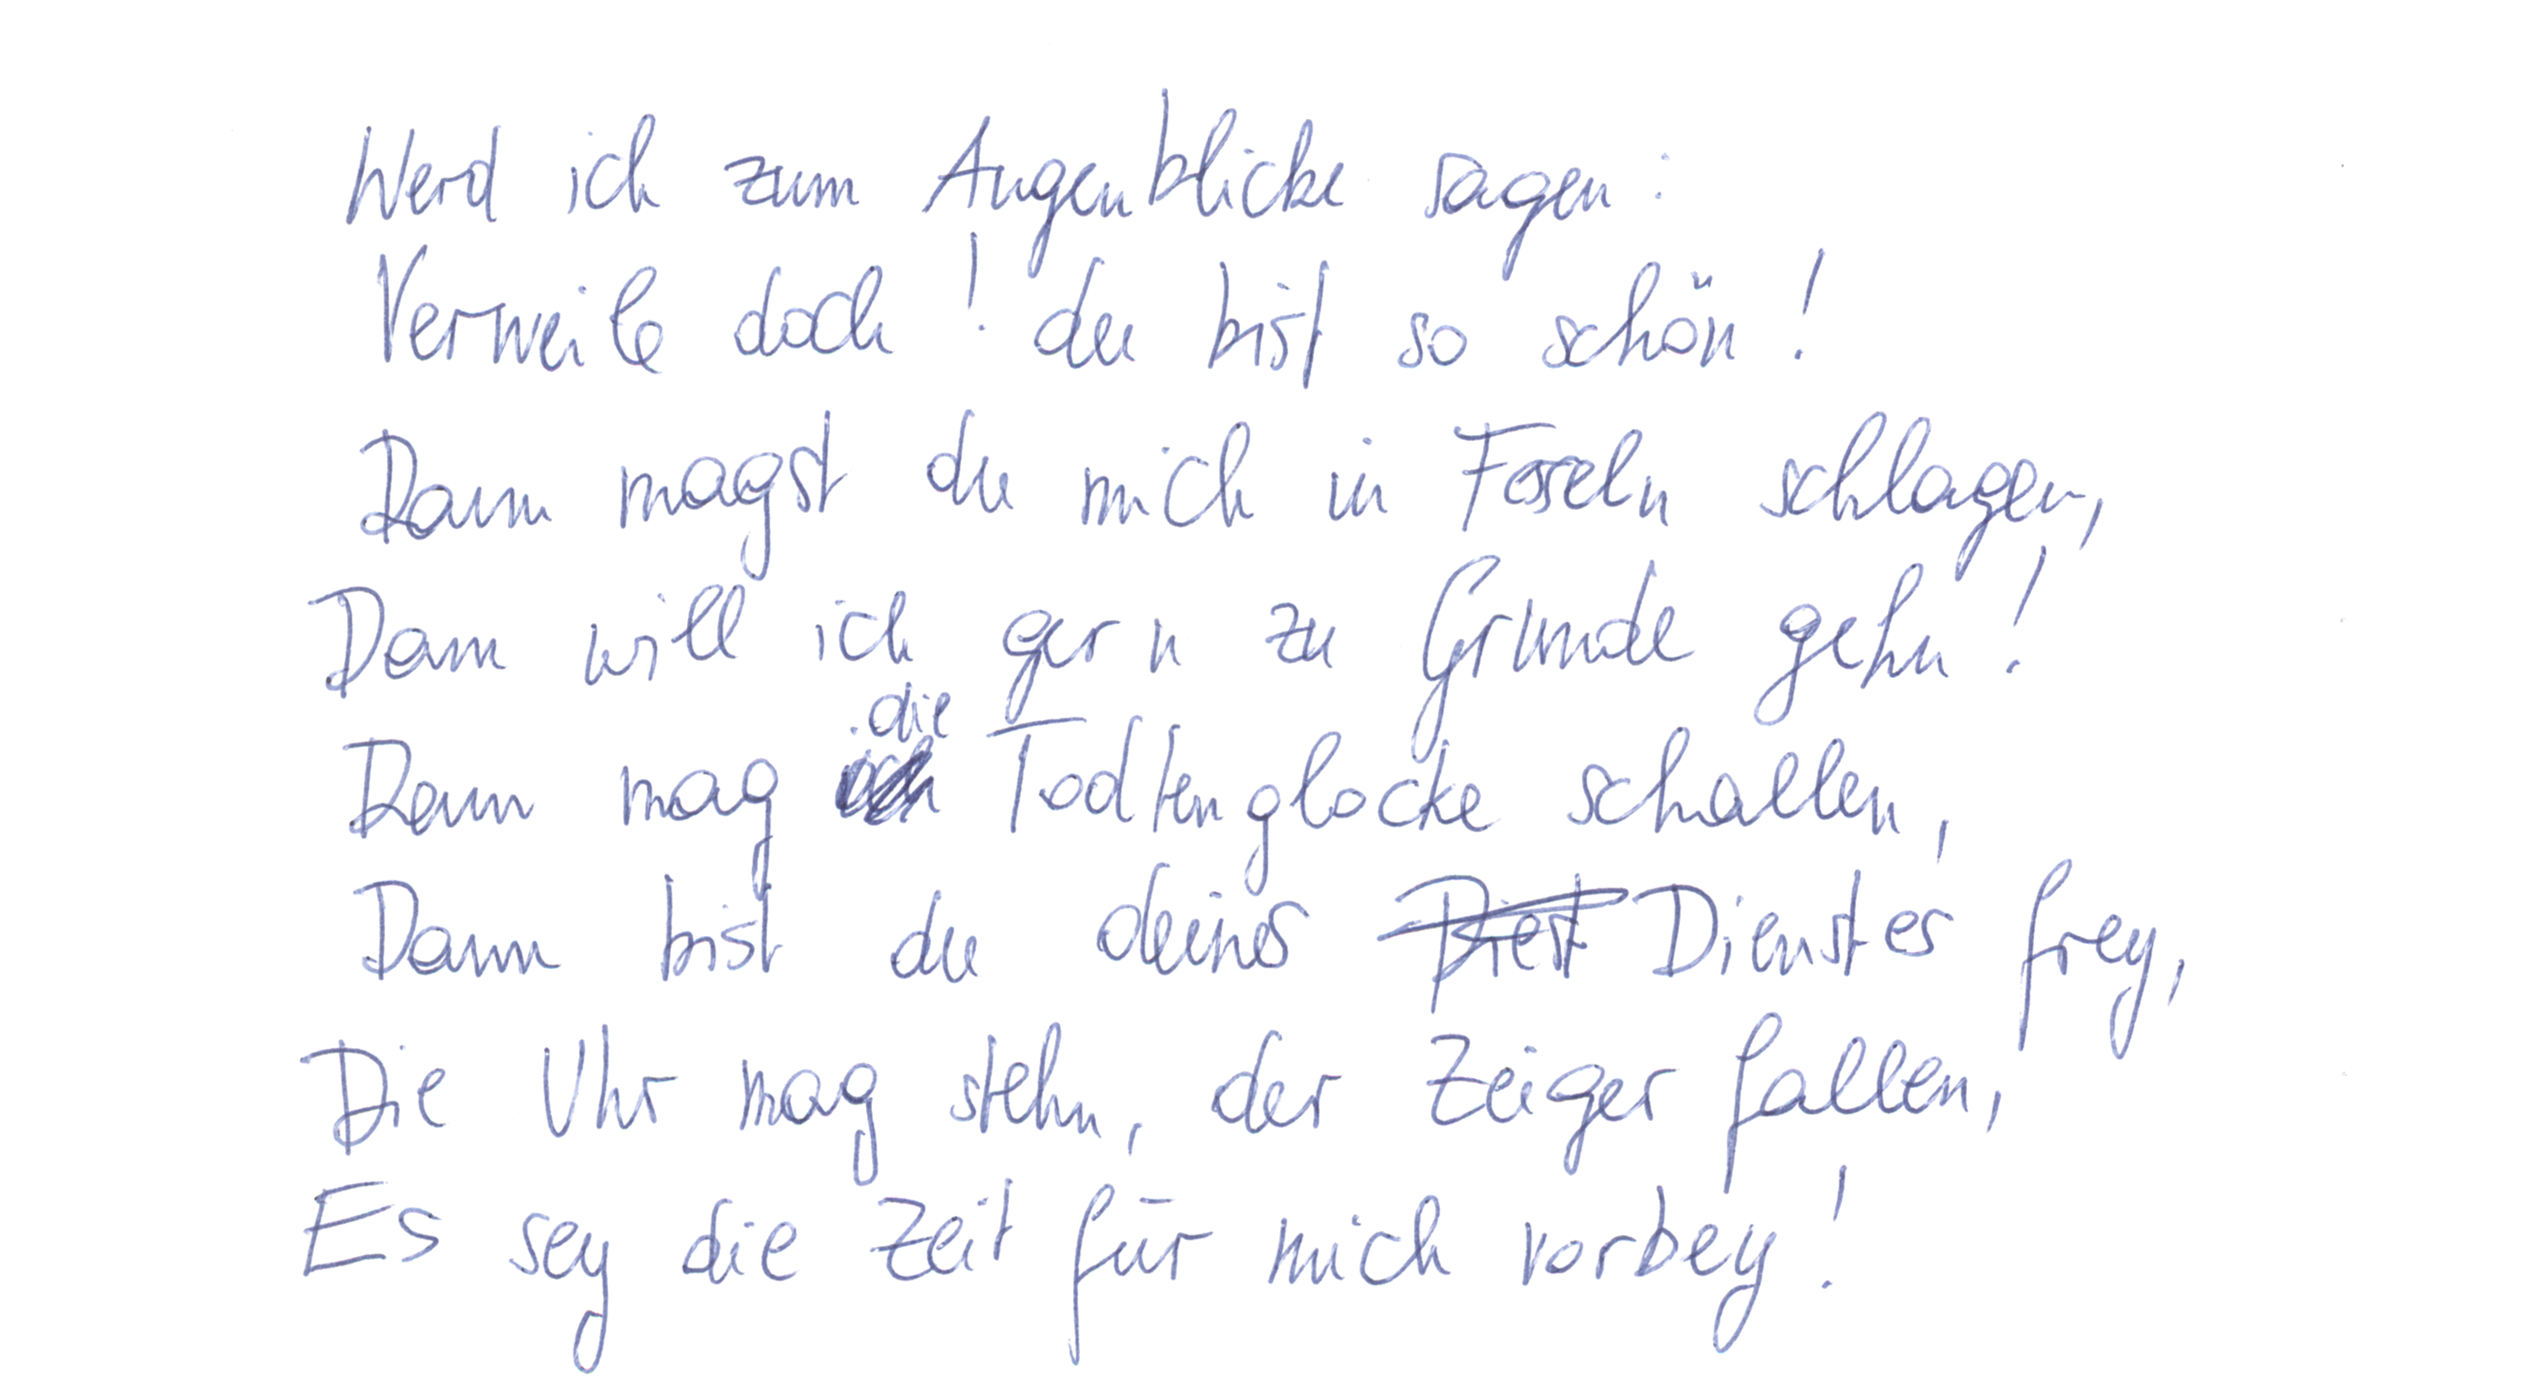 Werd ich zum Augenblicke sagen:
Verweile doch! du bist so schön!
Dann magst du mich in Fesseln schlagen,
Dann will ich gern zu Grunde gehn!
Dann mag die Todtenglocke schallen,
Dann bist du deines Dienstes frey,
Die Uhr mag stehn, der Zeiger fallen,
Es sey die Zeit für mich vorbey!